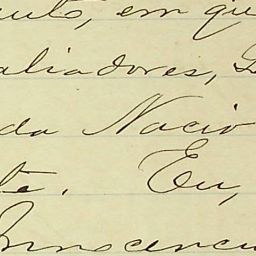 em que
aliadores,
da Nacio
te. Eu,
Innocencio